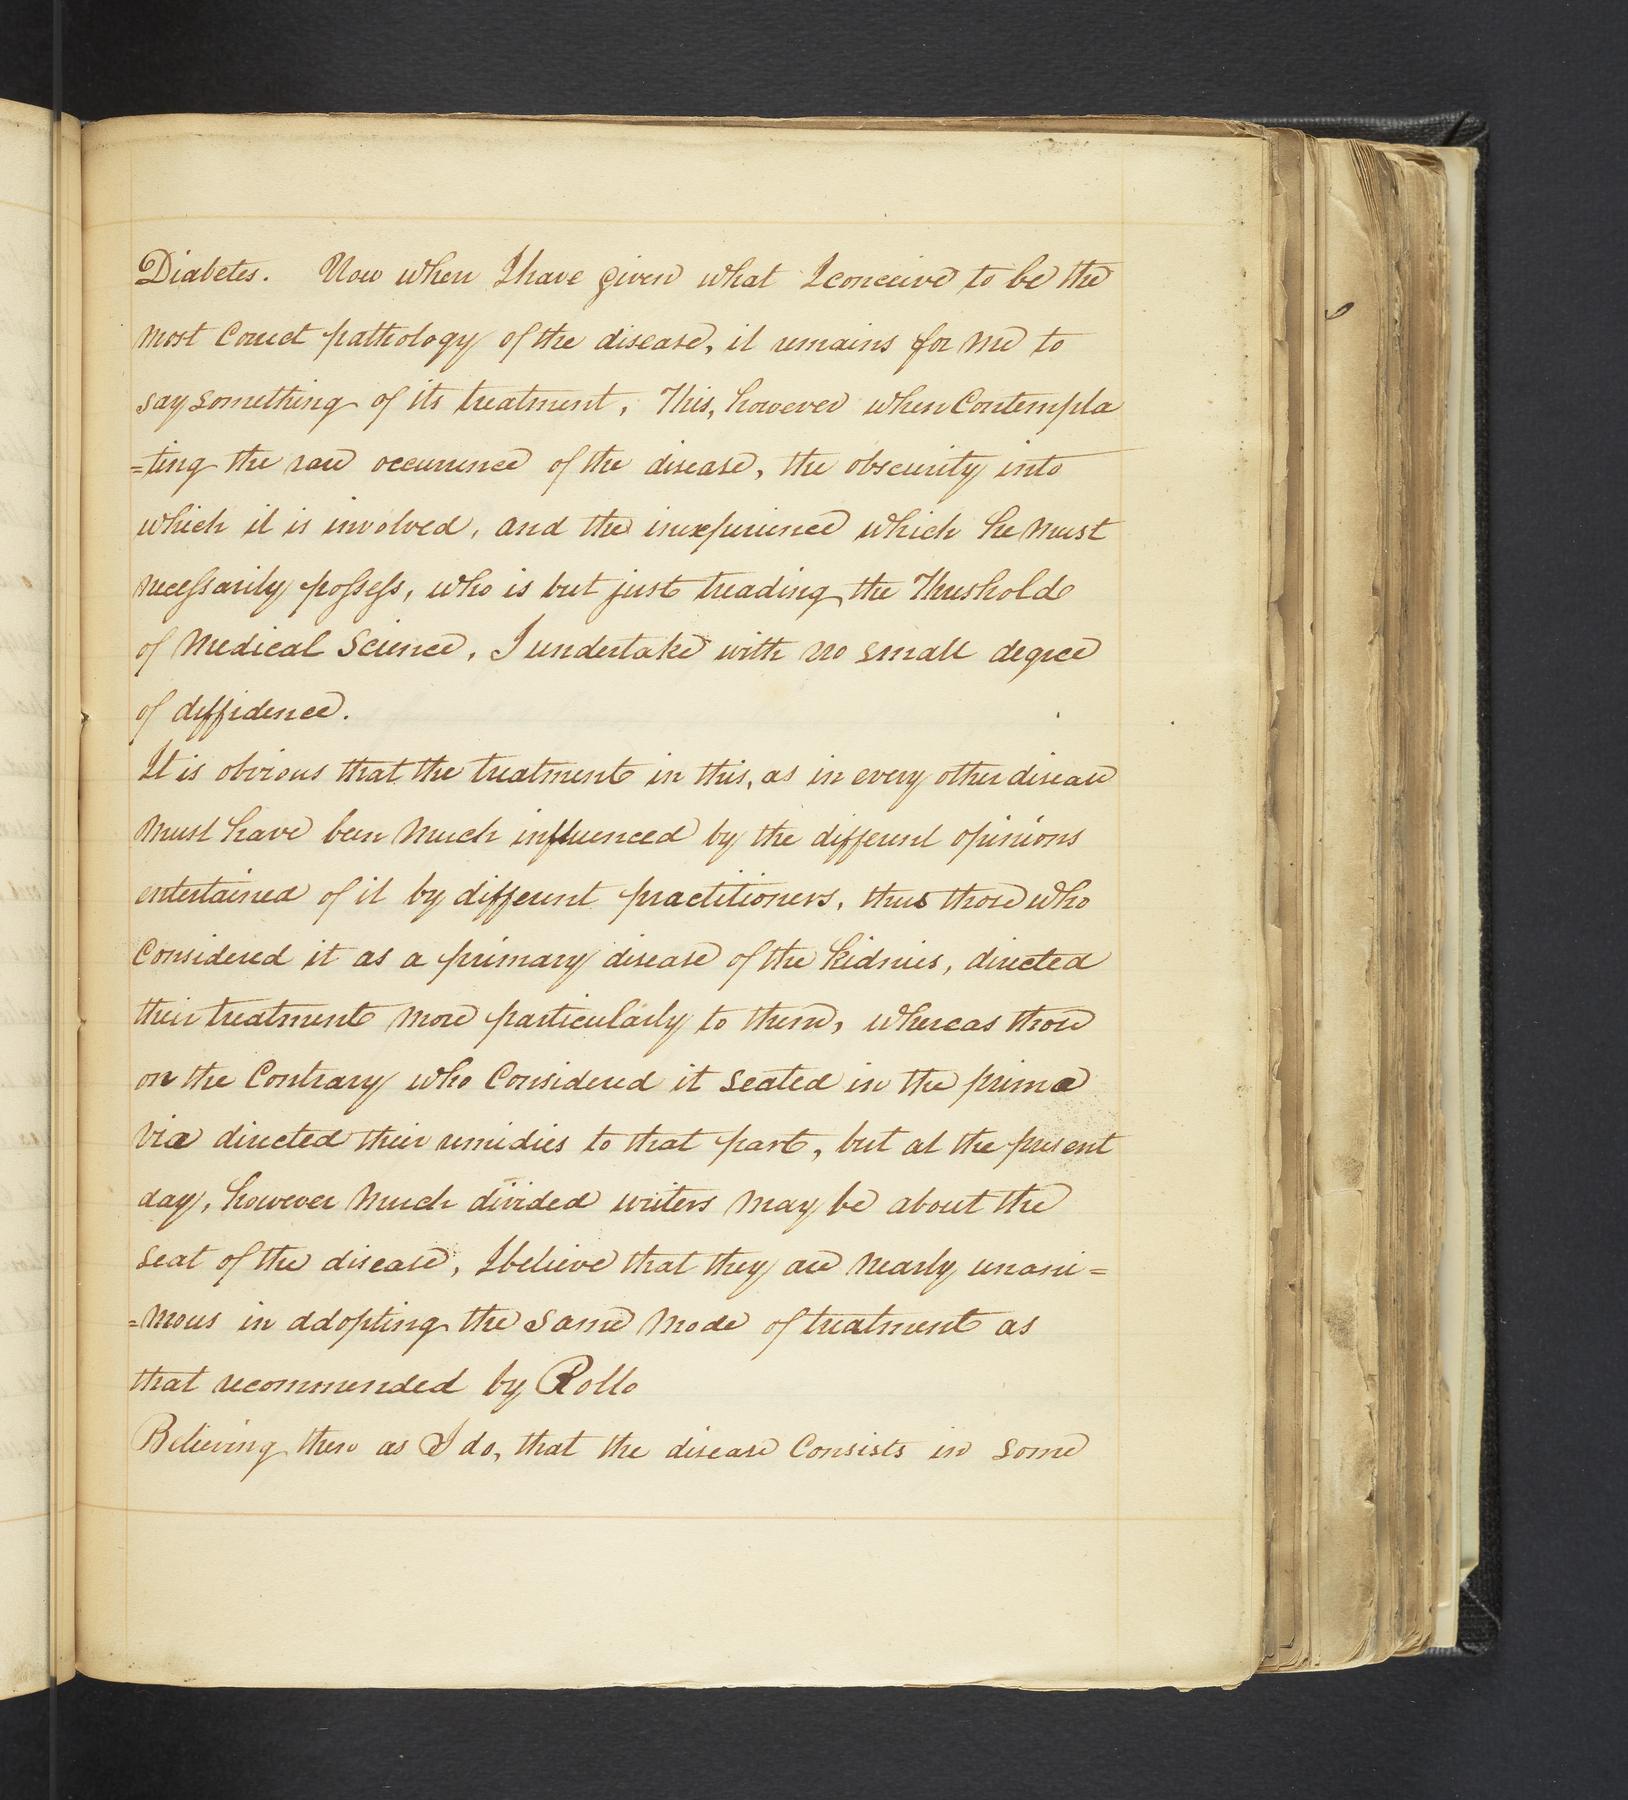 Diabetes. Now when I have given what I conceive to be the
most correct pathology of the disease, it remains for me to
say something of its treatment, This, however when Contempla
=ting the rare occurrence of the disease, the obscurity into
which it is involved, and the inexperience which he must
necessarily possess, who is but just treading the Threshold
of Medical Science, I undertake with no small degree
of diffidence.
It is obvious that the treatment in this, as in every other disease
must have been much influenced by the different opinions
entertained of it by different practitioners, thus those who
Considered it as a primary disease of the Kidnies, directed
their treatment more particularly to them, whereas those
on the Contrary who Considered it seated in the prima
via directed their remidies to that part, but at the present
day, however much divided writers may be about the
seat of the disease, I believe that they are nearly unani=
=mous in adopting the same mode of treatment as
that recommended by Rollo
Believing then as I do, that the disease Consists in some